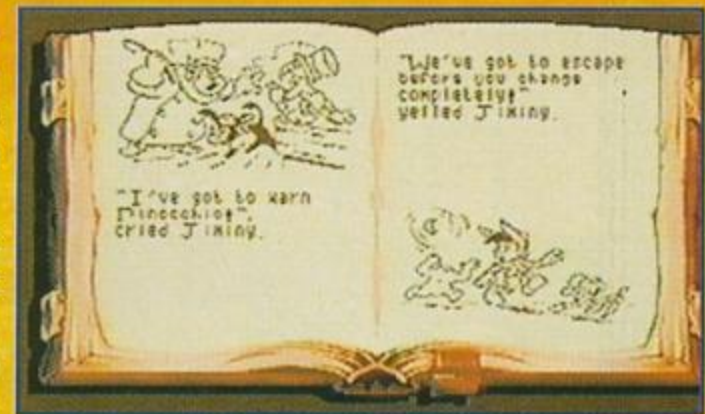 "I've got to warn
Pinocchio!",
cried Jiminy.
"We've got to escape
before you change
completely!"
yelled Jiminy.